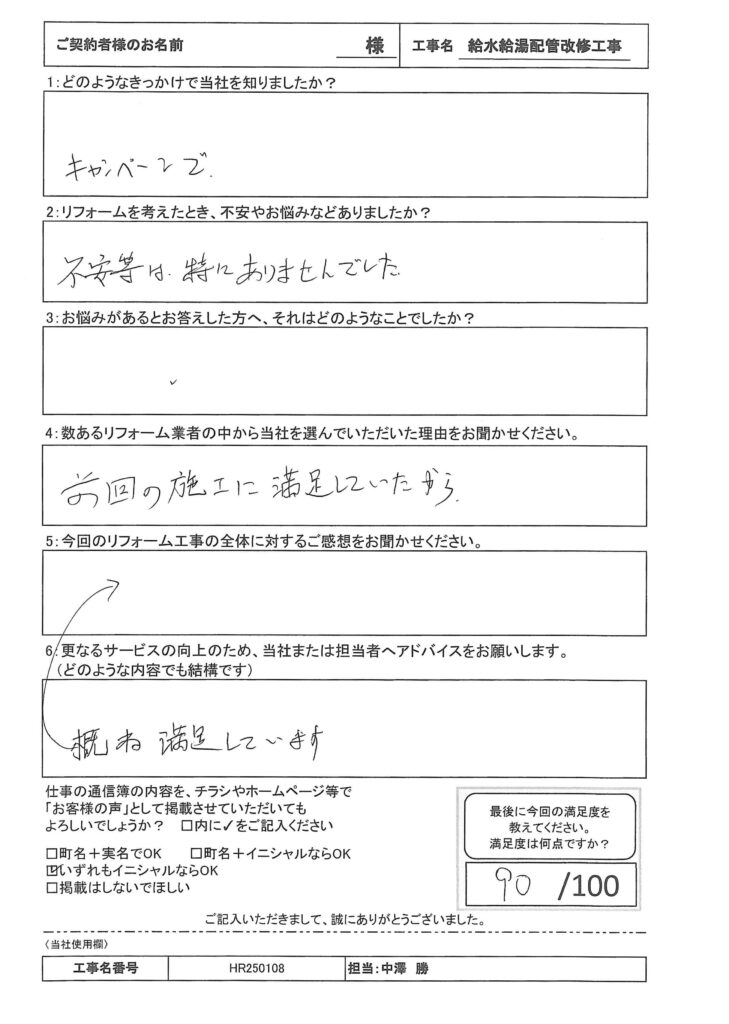 ご契約者様のお名前 様 工事名 給水給湯配管改修工事
1:どのようなきっかけで当社を知りましたか？
キャンペーンで.
2:リフォームを考えたとき、不安やお悩みなどありましたか？
不安等は.特にありませんでした.
3:お悩みがあるとお答えした方へ、それはどのようなことでしたか？
4:数あるリフォーム業者の中から当社を選んでいただいた理由をお聞かせください。
前回の施工に満足していたから.
5:今回のリフォーム工事の全体に対するご感想をお聞かせください。
6:更なるサービスの向上のため、当社または担当者へアドバイスをお願いします。
（どのような内容でも結構です）
概ね満足しています
仕事の通信簿の内容を、チラシやホームページ等で
「お客様の声」として掲載させていただいても
よろしいでしょうか？ □内に✓をご記入ください
□町名＋実名でOK □町名＋イニシャルならOK
☑いずれもイニシャルならOK
□掲載はしないでほしい
最後に今回の満足度を
教えてください。
満足度は何点ですか？
90 /100
ご記入いただきまして、誠にありがとうございました。
〈当社使用欄〉
工事名番号 HR250108 担当:中澤 勝